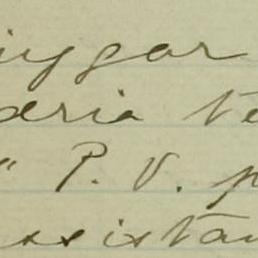 iggar
æria te
" P. V. p
ssistan